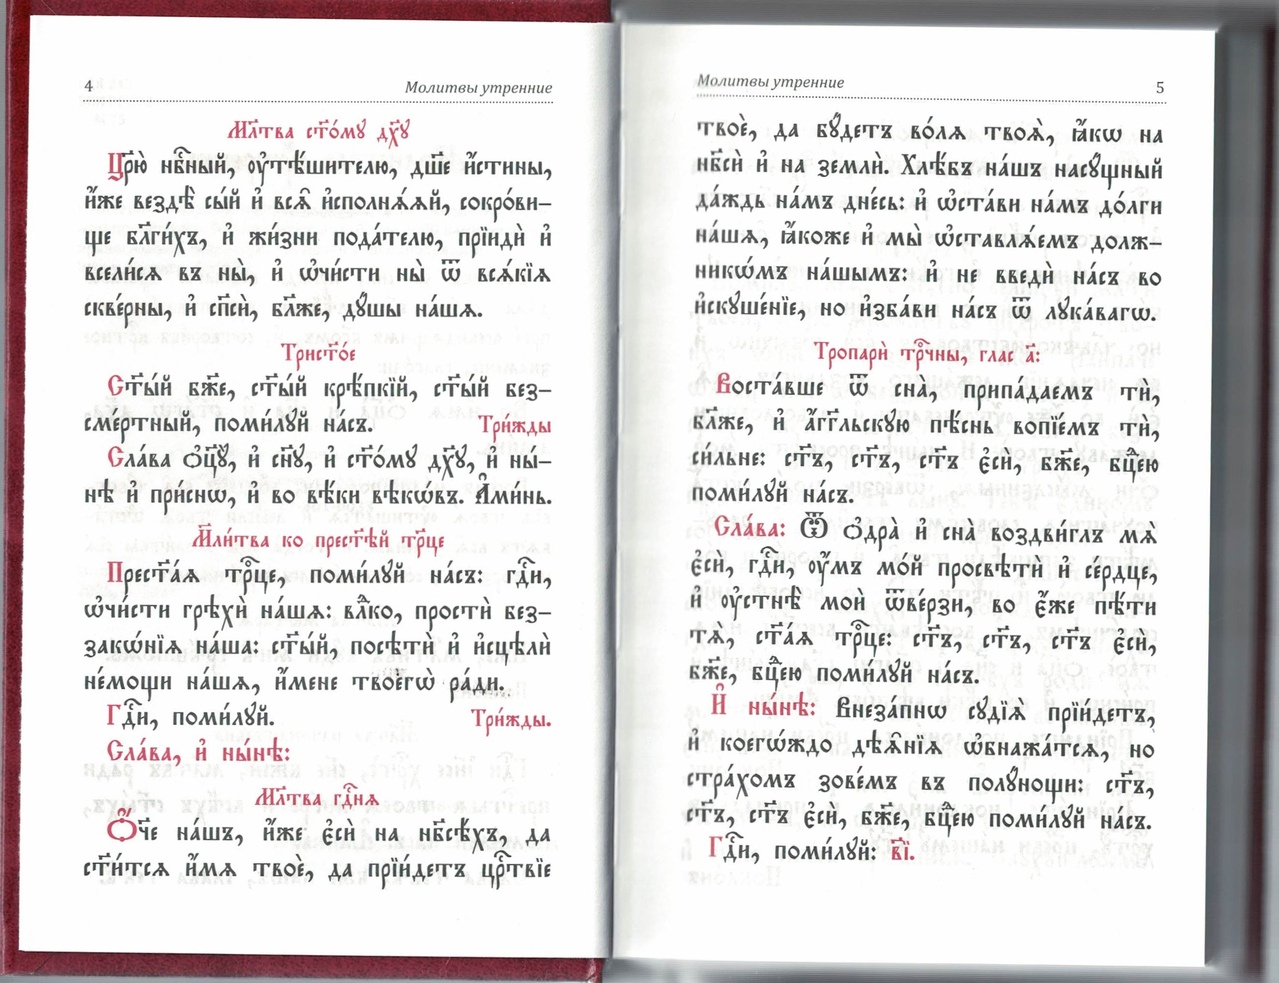 4 Молитвы утренние
Мл҃тва ст҃о́мꙋ дх҃ꙋ
Цр҃ю̀ нбⷭ҇ный, ᲂу҆тѣ́шителю, дш҃е и҆́стины,
и҆́же вездѣ̀ сы́й и҆ всѧ̑ и҆сполнѧ́ѧй, сокро́ви-
ще бл҃ги́хъ, и҆ жи́зни пода́телю, прїидѝ и҆
всели́сѧ въ ны̀, и҆ ѡ҆чи́сти ны̀ ѿ всѧ́кїѧ
скве́рны, и҆ сп҃сѝ, бл҃же, дꙋ́шы на́шѧ.
Трист҃о́е
Ст҃ы́й бж҃е, ст҃ы́й крѣ́пкїй, ст҃ы́й без-
сме́ртный, поми́лꙋй на́съ. Три́жды
Сла́ва ѻ҆ц҃ꙋ̀, и҆ сн҃ꙋ, и҆ ст҃о́мꙋ дх҃ꙋ, и҆ ны́-
нѣ и҆ при́снѡ, и҆ во вѣ́ки вѣкѡ́въ. А҆ми́нь.
Мл҃и́тва ко прест҃ѣ́й трⷪ҇це
Прест҃а́ѧ трⷪ҇це, поми́лꙋй на́съ: гдⷭ҇и,
ѡ҆чи́сти грѣхѝ на́шѧ: влⷣко, простѝ без-
зако́нїѧ на́ша: ст҃ы́й, посѣтѝ и҆ и҆сцѣлѝ
не́мощи на́шѧ, и҆́мене твоегѡ̀ ра́ди.
Гдⷭ҇и, поми́лꙋй. Три́жды.
Сла́ва, и҆ ны́нѣ:
Мл҃тва гдⷭ҇нѧ
Ѻ҆́ч҃е на́шъ, и҆́же є҆сѝ на нб҃сѣ́хъ, да
ст҃и́тсѧ и҆́мѧ твоѐ, да прїи́детъ црⷭ҇твїе
Молитвы утренние 5
твоѐ, да бꙋ́детъ во́лѧ твоѧ̀, ꙗ҆́кѡ на
нб҃сѝ и҆ на землѝ. Хлѣ́бъ на́шъ насꙋ́щный
да́ждь на́мъ дне́сь: и҆ ѡ҆ста́ви на́мъ до́лги
на́шѧ, ꙗ҆́коже и҆ мы̀ ѡ҆ставлѧ́емъ долж-
никѡ́мъ на́шымъ: и҆ не введѝ на́съ во
и҆скꙋше́нїе, но и҆зба́ви на́съ ѿ лꙋка́вагѡ.
Тропарѝ трⷪ҇чны, глас а҃:
Воста́вше ѿ сна̀, припа́даемъ тѝ,
бл҃же, и҆ а҆́гг҃льскꙋю пѣ́снь вопїе́мъ тѝ,
си́льне: ст҃ъ, ст҃ъ, ст҃ъ є҆сѝ, бж҃е, бцⷣею
поми́лꙋй на́съ.
Сла́ва: Ѿ ѻ҆дра̀ и҆ сна̀ воздви́глъ мѧ̀
є҆сѝ, гдⷭ҇и, ᲂу҆́мъ мо́й просвѣтѝ и҆ се́рдце,
и҆ ᲂу҆стнѣ̀ моѝ ѿве́рзи, во є҆́же пѣ́ти
тѧ̀, ст҃а́ѧ трⷪ҇це: ст҃ъ, ст҃ъ, ст҃ъ є҆сѝ,
бж҃е, бцⷣею поми́лꙋй на́съ.
И҆ ны́нѣ: Внеза́пнѡ сꙋдїѧ̀ прїи́детъ,
и҆ коегѡ́ждо дѣѧ̑нїѧ ѡ҆бнажа́тсѧ, но
стра́хомъ зове́мъ въ полꙋ́нощи: ст҃ъ,
ст҃ъ, ст҃ъ є҆сѝ, бж҃е, бцⷣею поми́лꙋй на́съ.
Гдⷭ҇и, поми́лꙋй: в҃і.